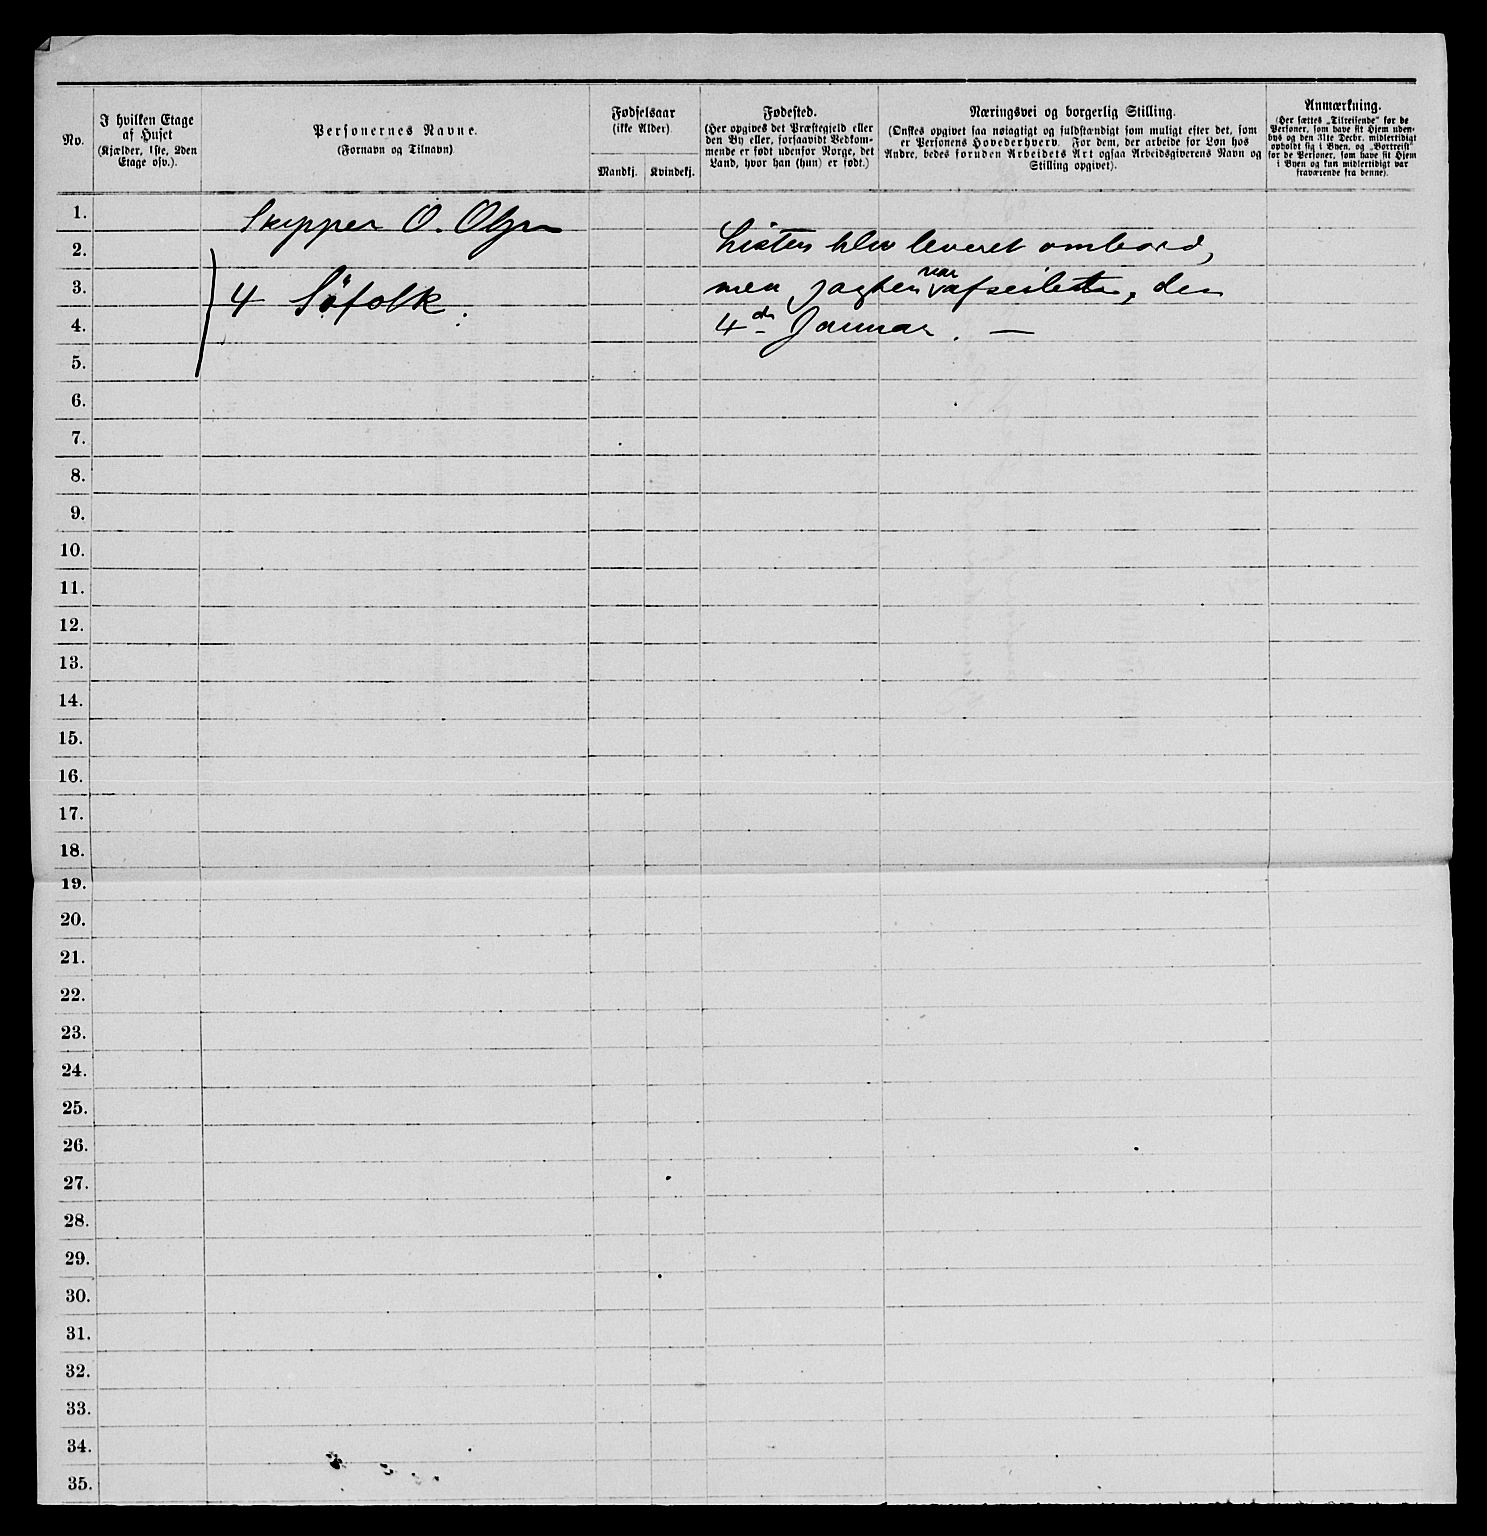 No.
I hvilken Etage
af Huset
(Kjælder, 1ste, 2den
Etage osv.).
Personernes Navne.
(Fornavn og Tilnavn)
Fødselsaar
(ikke Alder).
Mandkj.
Kvindekj.
Fødested.
(Her opgives det Præstegjeld eller
den By eller, forsaavidt Vedkom-
mende er født udenfor Norge, det
Land, hvor han (hun) er født.)
Næringsvei og borgerlig Stilling.
(Ønskes opgivet saa nøiagtigt og fuldstændigt som muligt efter det, som
er Personens Hovederhverv. For dem, der arbeide for Løn hos
Andre, bedes foruden Arbeidets Art ogsaa Arbeidsgiverens Navn og
Stilling opgivet).
Anmærkning.
(Her sættes „Tilreisende" for de
Personer, som have sit Hjem uden-
bys og den 31te Decbr. midlertidigt
opholdt sig i Byen, og „Bortreist"
for de Personer, som have sit Hjem
i Byen og kun midlertidigt var
fraværende fra denne).
1. Skipper O.
2. Listen blev leveret ombord,
3. 4 Söfolk. men jagten var afseilet, den
4. 4de Januar. —
5.
6.
7.
8.
9.
10.
11.
12.
13.
14.
15.
16.
17.
18.
19.
20.
21.
22.
23.
24.
25.
26.
27.
28.
29.
30.
31.
32.
33.
34.
35.